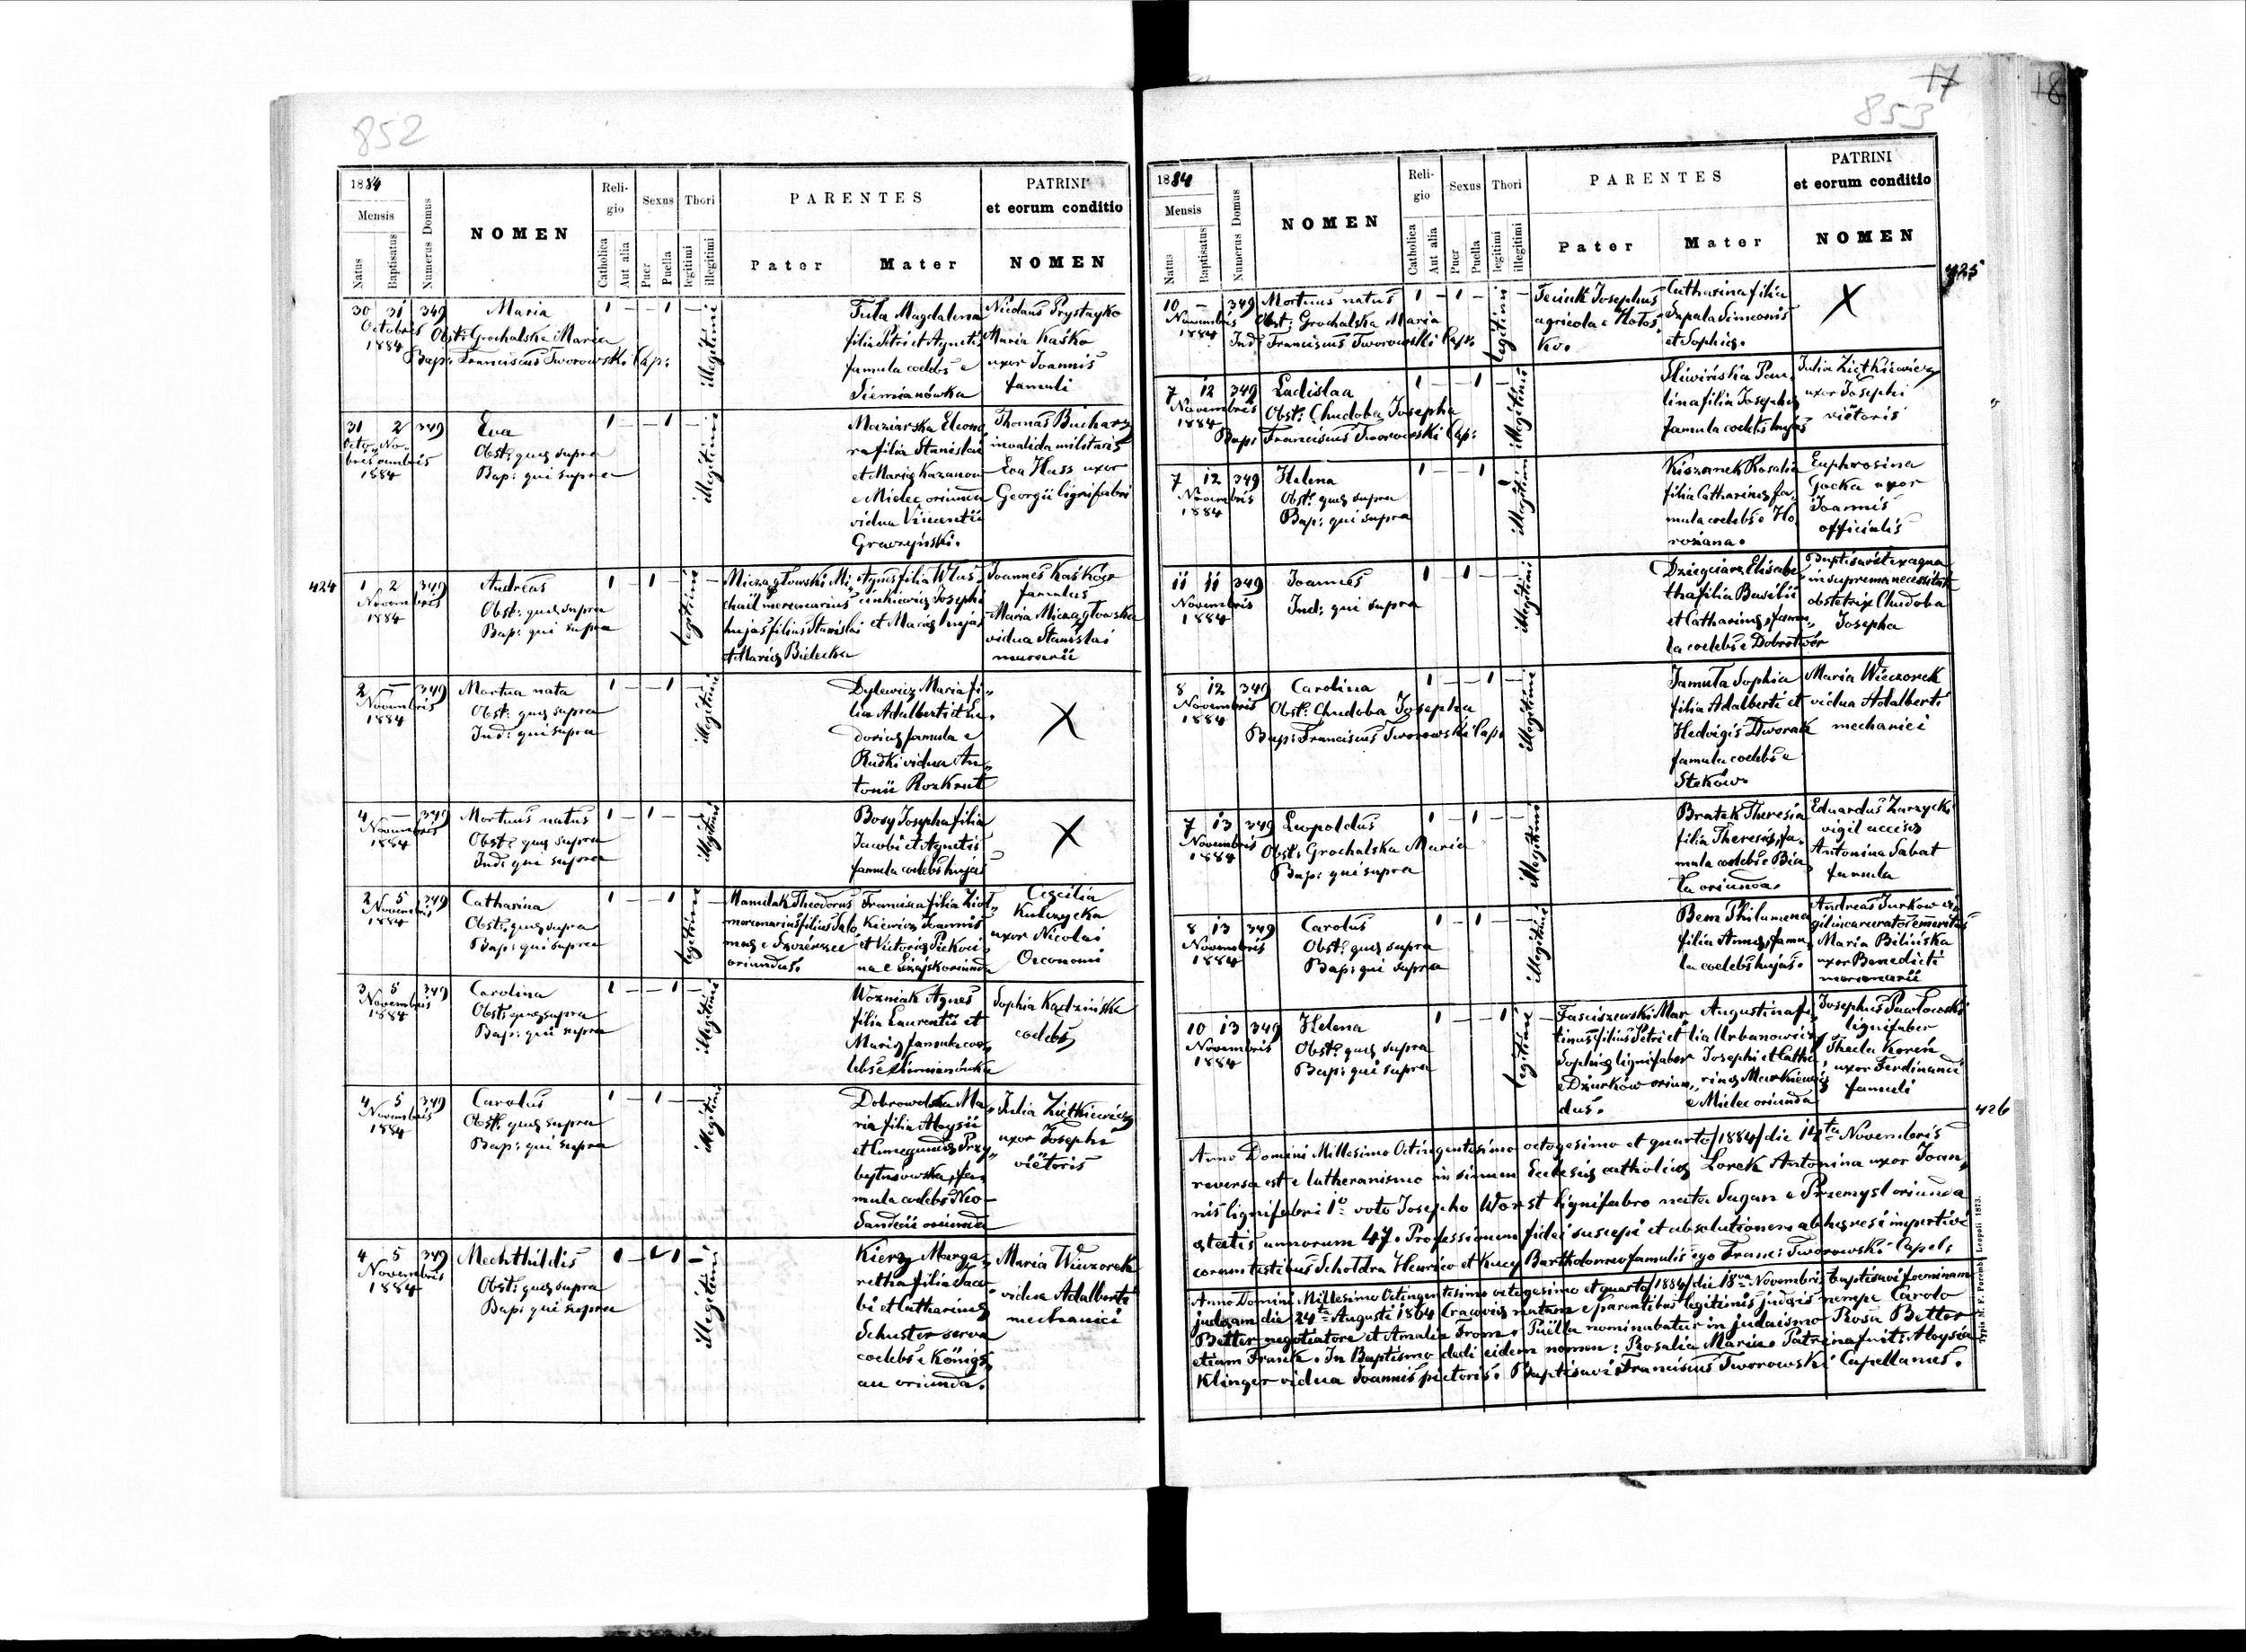 852
1884
Mensis
Natus
Baptisatus
Numerus Domus
NOMEN
Reli-
gio
Catholica
Aut alia
Sexus
Puer
Puella
Thori
legitimi
illegitimi
PARENTES
Pater
Mater
PATRINI
et eorum conditio
NOMEN
30 31 349 Maria 1 — — 1 —
Octobris Obst: Grochalska Maria
1884
Bap: Franciscus Tworowski Cap:
illegitimi
Tula Magdalena
filia Petri et Agnetis
famula coelebs e
Siemianówka
Nicolaus Prystayko
Maria Kaśko
uxor Joannis
famuli
31 2 349 Eva 1 — — 1 —
Octo- No-
bris vembris
1884
Obst: quae supra
Bap: qui supra
illegitimi
Maziarska Eleono-
ra filia Stanislai
et Mariae Kazanow
e Mielec oriunda
vidua Vincentii
Graczyński.
Thomas Bucharz
invalida militaris
Eva Hass uxor
Georgii lignifabri
424
1 2 349 Andreas 1 — 1 — —
Novembris
1884
Obst: quae supra
Bap: qui supra
legitimi
Miczagłowski Mi-
chaël mercenarius
hujas filius Stanislai
et Mariae Bielecka
Agnes filia Wlas-
cinkiewicz Josephi
et Mariae hujas
Joannes Kaśków
famulus
Maria Miczagłowska
vidua Stanislai
murarii
2 — 349 Mortua nata 1 — — 1 —
Novembris
1884
Obst: quae supra
Ind: qui supra
illegitimi
Dylewicz Maria fi-
lia Adalberti et Eu-
doriae famula e
Rudki vidua An-
tonii Rozkrut
X
4 — 349 Mortuus natus 1 — 1 — —
Novembris
1884
Obst: quae supra
Ind: qui supra
illegitimi
Bosy Josepha filia
Jacobi et Agnetis
famula coelebs hujas
X
2 5 349 Catharina 1 — — 1 —
Novembris
1884
Obst: quae supra
Bap: qui supra
legitimi
Mamulak Theodorus
mercenarius filius Salo-
mae e
oriundus.
Francisca filia Ziół-
kiewicz Joannis
et Victoriae
na e Leżajsk oriunda
Caecilia
Kulczycka
uxor Nicolai
Oeconomi
3 5 349 Carolina 1 — — 1 —
Novembris
1884
Obst: quae supra
Bap: qui supra
illegitimi
Wozniak Agnes
filia Laurentii et
Mariae famula coe-
lebs e Siemianówka
Sophia Kądzińska
coelebs
4 5 349 Carolus 1 — 1 — —
Novembris
1884
Obst: quae supra
Bap: qui supra
illegitimi
Dobrowolska Ma-
ria filia Aloysii
et Cunegundis Przy-
bytniowska, fa-
mula coelebs Neo-
Sandecii oriunda
Julia Ziętkiewicz
uxor Josephi
viëtoris
4 5 349 Mechthildis 1 — 1 —
Novembris
1884
Obst: quae supra
Bap: qui supra
illegitimi
Kierz Marga-
rettha filia Jaco-
bi et Catharinae
Schuster serva
coelebs e Königs-
au oriunda.
Maria Wieczorek
vidua Adalberti
mechanici
17
18
853
1884
Mensis
Natus
Baptisatus
Numerus Domus
NOMEN
Reli-
gio
Catholica
Aut alia
Sexus
Puer
Puella
Thori
legitimi
illegitimi
PARENTES
Pater
Mater
PATRINI
et eorum conditio
NOMEN
425
10 — 349 Mortuus natus 1 — 1 — —
Novembris
1884
Obst: Grochalska Maria
Ind: Franciscus Tworowski Cap:
legitimi
Josephus
agricola e Hołos-
ko.
Catharina filia
Supala Simeonis
et Sophiae.
X
7 12 349 Ladislaa 1 — — 1 —
Novembris
1884
Obst: Chudoba Josepha
Bap: Franciscus Tworowski Cap:
illegitimi
Śliwińska Pau-
lina filia Josephi
famula coelebs hujas
Julia Ziętkiewicz
uxor Josephi
viëtoris
7 12 349 Helena 1 — — 1
Novembris
1884
Obst: quae supra
Bap: qui supra
illegitimi
Kiszanek Rosalia
filia Catharinae fa-
mula coelebs e Ho-
rożana.
Euphrosina
Gocka uxor
Joannis
officialis
11 11 349 Joannes 1 — 1 — —
Novembris
1884
Ind: qui supra
illegitimi
Dziegciarz Elisabe-
tha filia Basilii
et Catharinae, famu-
la coelebs e Dobrotwór
Baptisavit ex aqua
in suprema necessitate
obstetrix Chudoba
Josepha
8 12 349 Carolina 1 — — 1 —
Novembris
1884
Obst: Chudoba Josepha
Bap: Franciscus Tworowski Cap:
illegitimi
Jamuła Sophia
filia Adalberti et
Hedvigis Dworak
famula coelebs e
Steków.
Maria Wieczorek
vidua Adalberti
mechanici
7 13 349 Leopoldus 1 — 1 — —
Novembris
1884
Obst: Grochalska Maria
Bap: qui supra
illegitimi
Bratek Theresia
filia Theresiae, fa-
mula coelebs e Bia-
ła oriunda.
Eduardus Zarzycki
vigil accisae
Antonina Sabat
famula
8 13 349 Carolus 1 — 1 — —
Novembris
1884
Obst: quae supra
Bap: qui supra
illegitimi
Bem Philumena
filia Annae, famu-
la coelebs hujas.
Andreas Jurkow vi-
gil incarceratos emeritus
Maria Bilińska
uxor Benedicti
mercenarii
10 13 349 Helena 1 — — 1 —
Novembris
1884
Obst: quae supra
Bap: qui supra
legitimi
Fasciszewski Mar-
tinus filius Petri et
Sophiae lignifaber
e Dżurków oriun-
dus.
Augustina fi-
lia Urbanowicz
Josephi et Catha-
rinae Markiewicz
e Mielec oriunda
Josephus Pawłowski
lignifaber
Thecla Koreń
uxor Ferdinandi
famuli
426
Anno Domini Millesimo Octingentesimo octogesimo et quarto /1884/ die 14ta Novembris
reversa est e lutheranismo in sinum Ecclesiae catholicae Lorek Antonina uxor Joan-
nis lignifabri 1o voto Josepho Worst lignifabro nata Sagan e Przemysl oriunda
aetatis annorum 47. Professionem fidei suscepi et absolutionem ab haeresi impertivi
coram testibus Scholdra Henrico et Kucy Bartholomeo famulis ego Franc: Tworowski Capel:
Anno Domini Millesimo Octingentesimo octogesimo et quarto /1884/ die 18va Novembris baptisavi foeminam
judaeam die 24ta Augusti 1864 Cracoviae natam e parentibus legitimis judaeis nempe Carolo
Better negotiatore et Amalia From. Puella nominabatur in judaismo Rosa Better
etiam Franik. In Baptismo dedi eidem nomen: Rosalia Maria. Patrina fuit: Aloysia
Klinger vidua Joannis pictoris. Baptisavi Franciscus Tworowski Capellanus.
Typis M. F. Poremby Leopoli 1873.